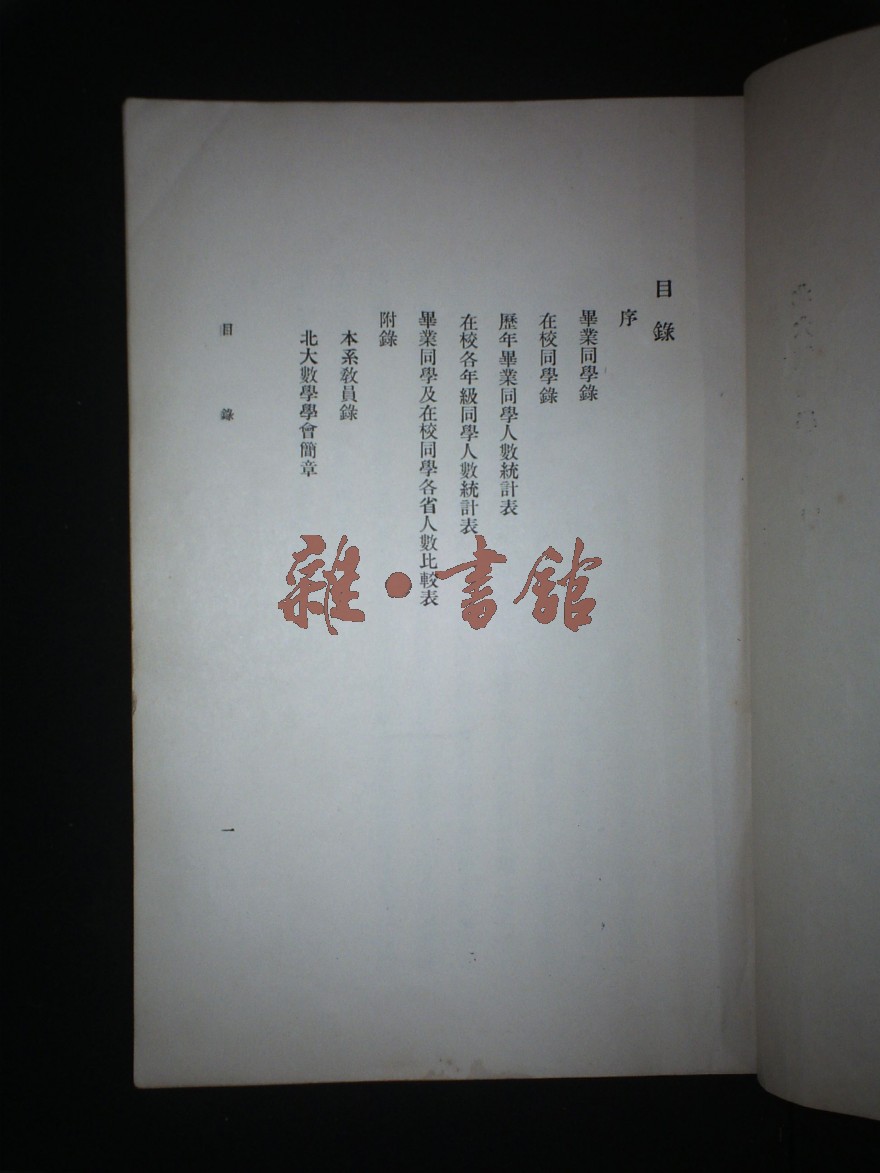 目錄
序
畢業同學錄
在校同學錄
歷年畢業同學人數統計表
在校各年級同學人數統計表
畢業同學及在校同學各省人數比較表
附錄
本系教員錄
北大數學學會簡章
目錄
一
雜·書館